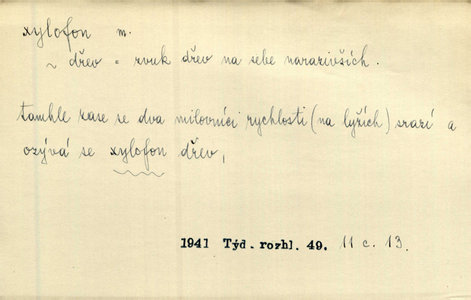 xylofon m.
~ dřev = zvuk dřev na sebe narazivších.
tamhle zase se dva milovníci rychlosti (na lyžích) srazí a
ozývá se xylofon dřev,
1941 Týd. rozhl. 49. 11 c. 13.